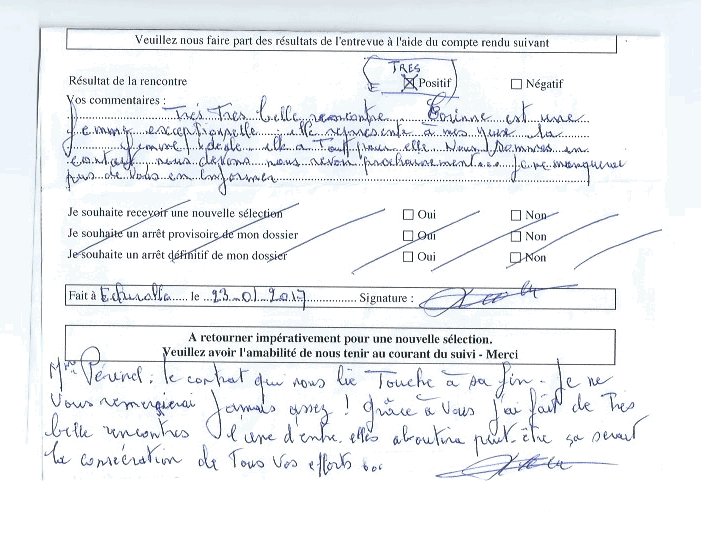 Veuillez nous faire part des résultats de l'entrevue à l'aide du compte rendu suivant
TRES
Résultat de la rencontre Positif Négatif
Vos commentaires :
Très Très belle rencontre Corinne est une
femme exceptionnelle elle représente à mes yeux la
femme idéale elle a Tout pour elle Nous sommes en
contact nous devons nous revoir prochainement... Je ne manquerai
pas de vous en informer
Je souhaite recevoir une nouvelle sélection Oui Non
Je souhaite un arrêt provisoire de mon dossier Oui Non
Je souhaite un arrêt définitif de mon dossier Oui Non
Fait à le 23-01-2017 Signature :
A retourner impérativement pour une nouvelle sélection.
Veuillez avoir l'amabilité de nous tenir au courant du suivi - Merci
Mme : le contrat qui nous lie Touche à sa fin - Je ne
Vous remercierai Jamais assez ! Grâce à Vous j'ai fait de Très
belle rencontres l'une d'entre elles aboutira peut-être ça serait
la consécration de Tous Vos efforts ...